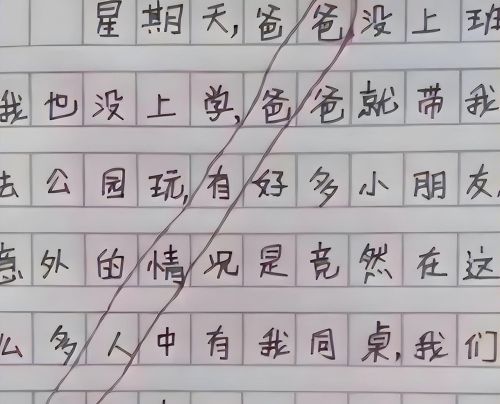 星期天,爸爸没上班
我也没上学,爸爸就带我
去公园玩,有好多小朋友,
意外的情况是竟然在这
么多人中有我同桌,我们